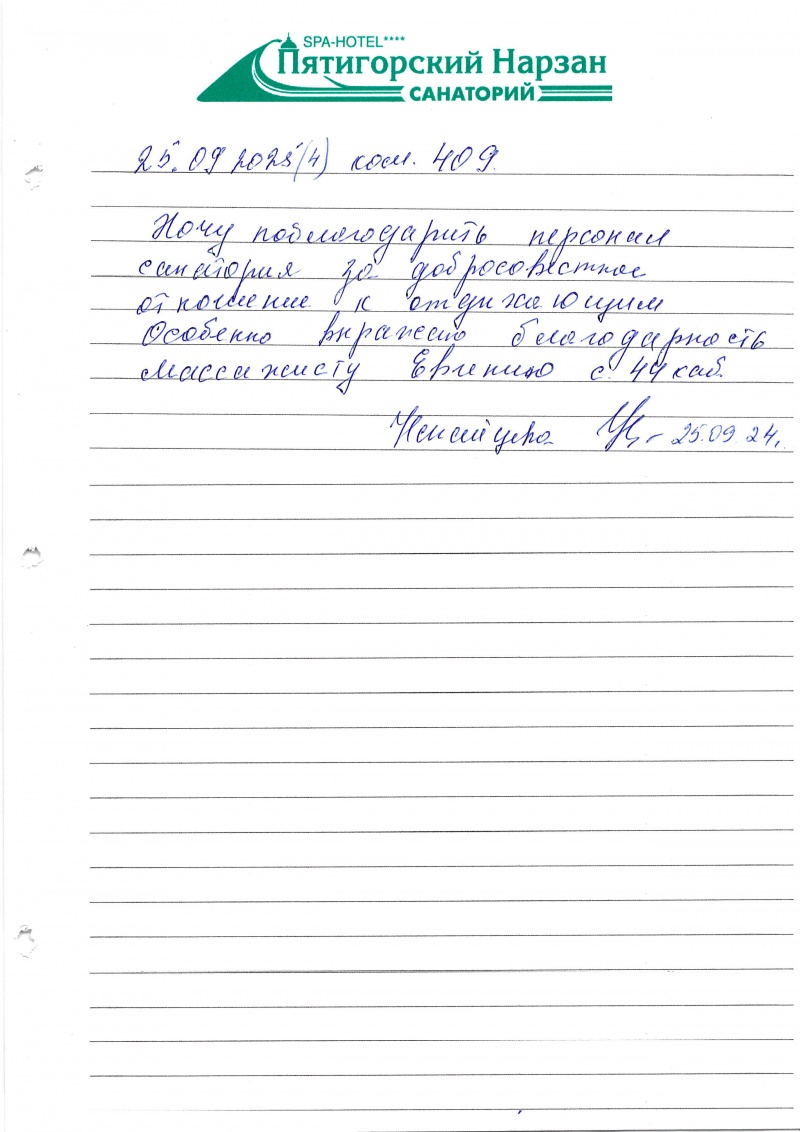 SPA-HOTEL****
Пятигорский Нарзан
САНАТОРИЙ
25.09 2025(4) ком. 409.
Хочу поблагодарить персонал
санатория за добросовестное
отношение к отдыхающим
Особенно выражаю благодарность
массажисту Евгению с 44 каб.
25.09.24.